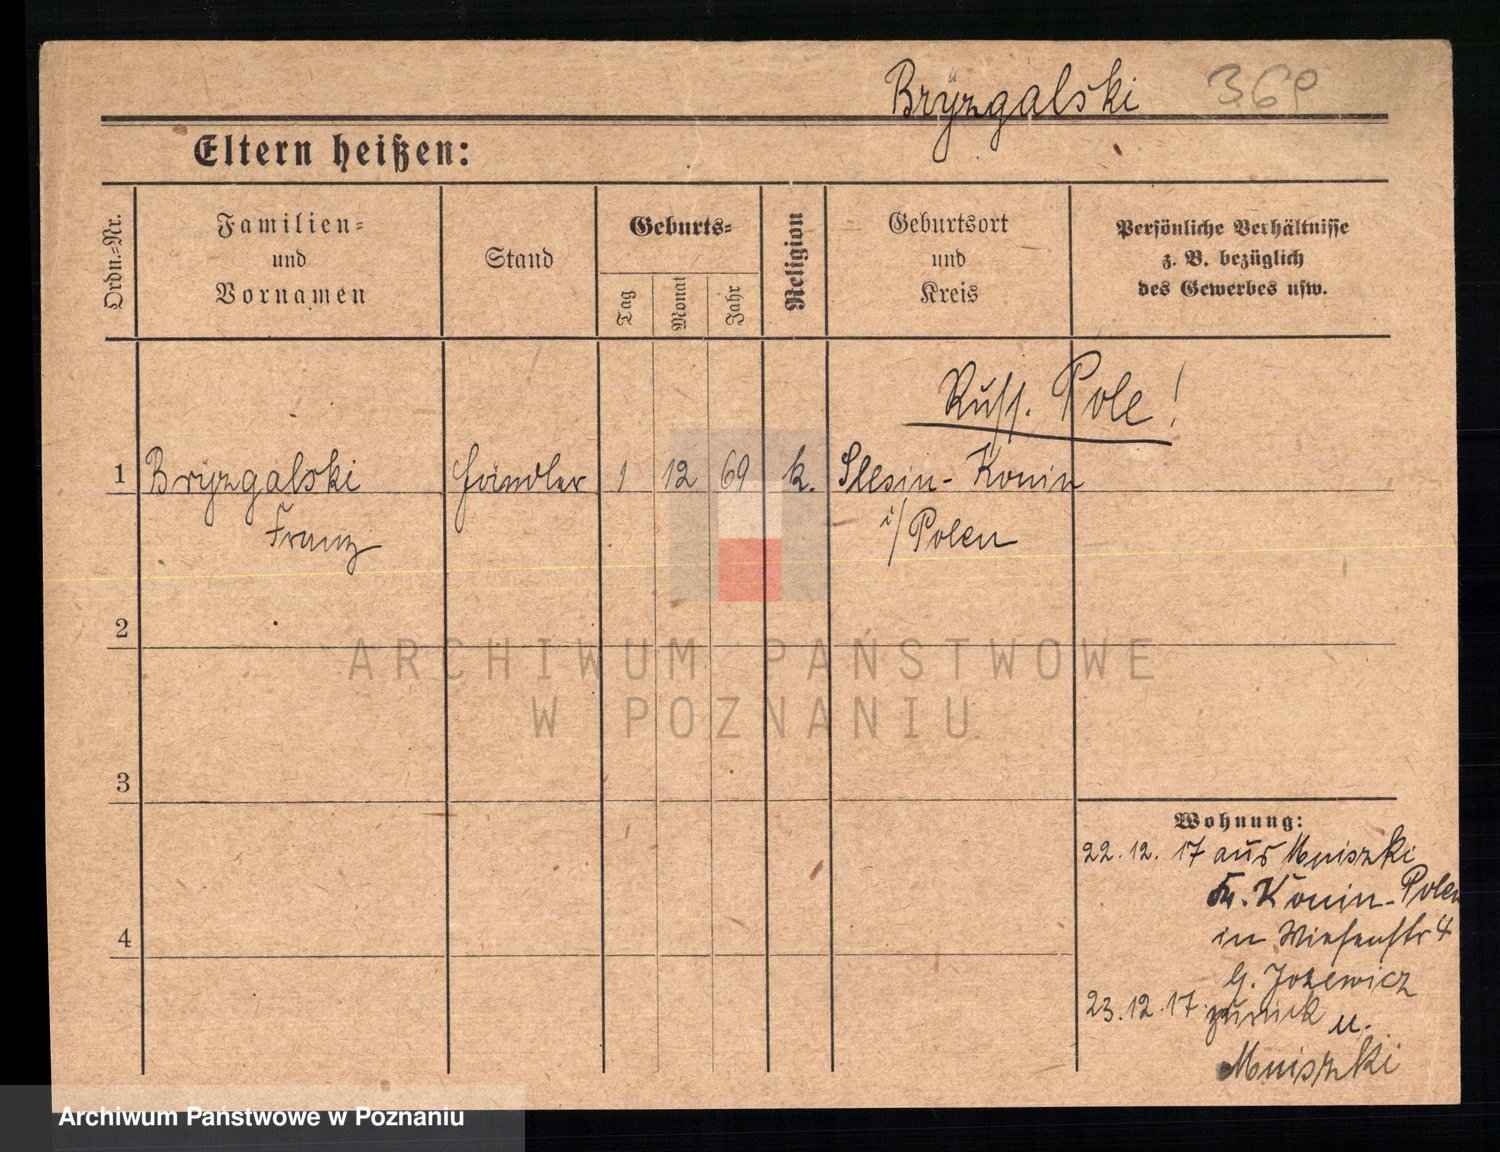 Brÿzgalski 369
Eltern heißen:
Ordn.-Nr.
Familien-
und
Vornamen
Stand
Geburts-
Tag
Monat
Jahr
Religion
Geburtsort
und
Kreis
Persönliche Verhältnisse
z. B. bezüglich
des Gewerbes usw.
Russ. Pole!
1 Brÿzgalski Händler 1 12 69 k. Slesin - Konin
Franz i/Polen
2
ARCHIWUM PAŃSTWOWE
W POZNANIU
3
Wohnung:
22.12.17 aus Mniszki
Kr. Konin-Polen
in Wiesenstr 4
b. Jozewicz
4
23.12.17 zurück n.
Mniszki
Archiwum Państwowe w Poznaniu